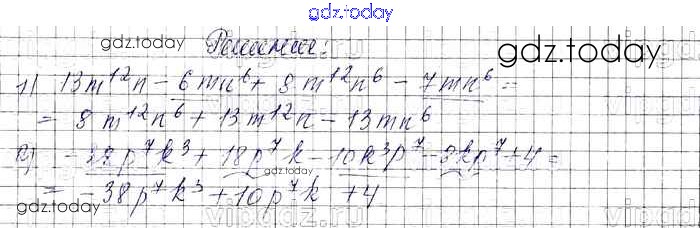 gdz.today
gdz.today Решение: gdz.today
1) 13m¹²n - 6mn⁶ + 8m¹²n⁶ - 7mn⁶ =
= 8m¹²n⁶ + 13m¹²n - 13mn⁶
2) p⁷k³ + 18p⁷k - 10k³p⁷ - 8kp⁷ + 4 =
= -38p⁷k³ + 10p⁷k + 4
gdz.today